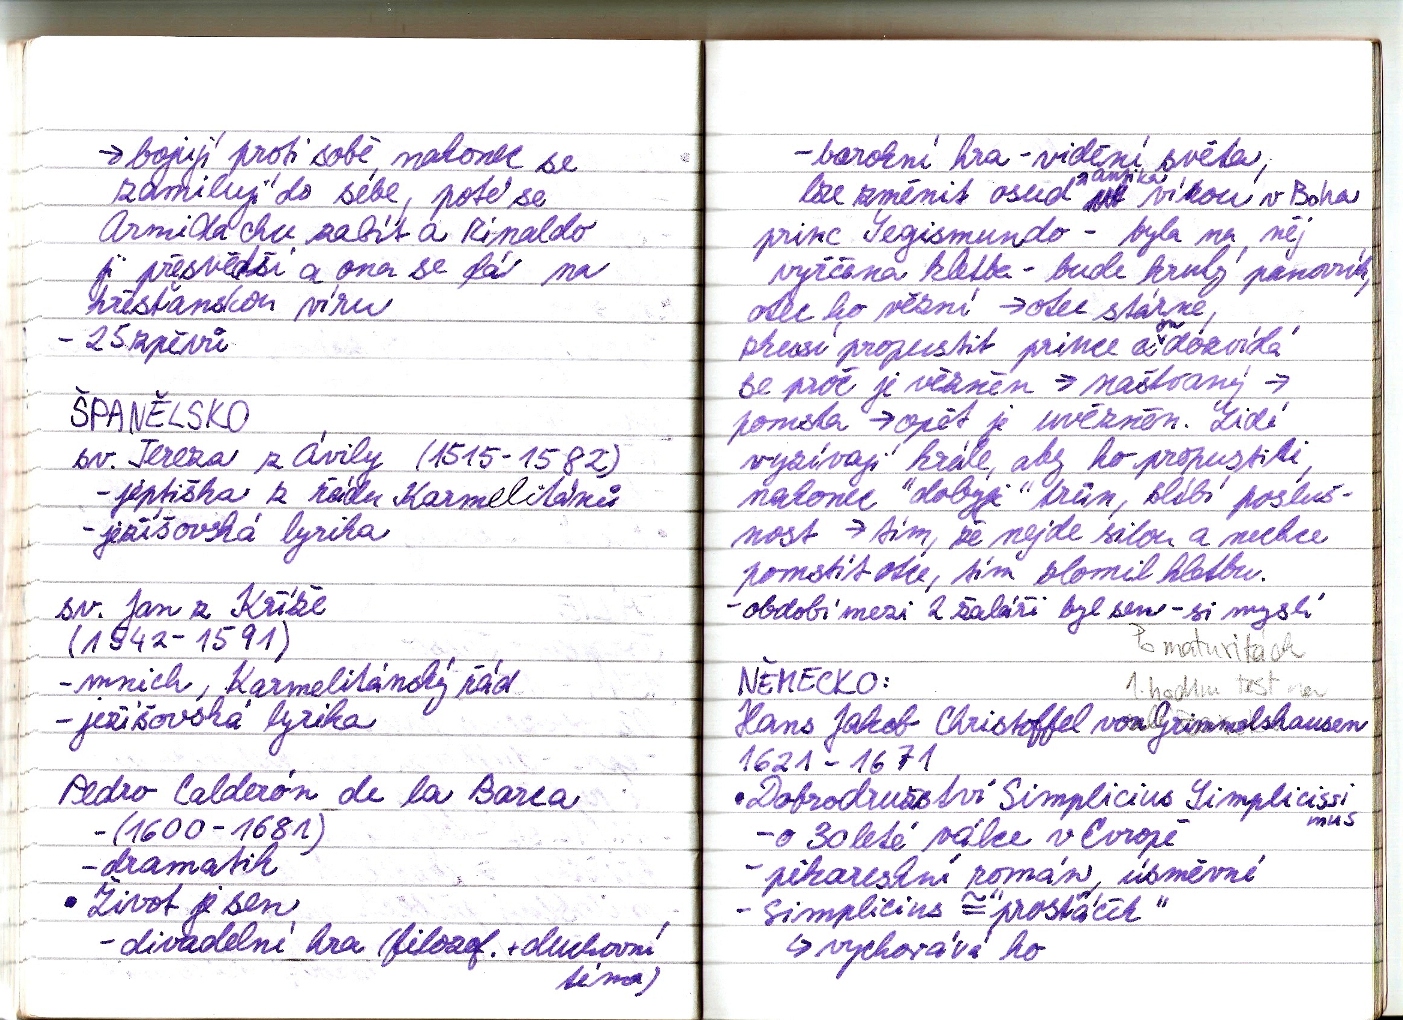 → bojují proti sobě nakonec se
zamilují do sebe, poté se
Armida chce zabít a Rinaldo
ji přesvědčí a ona se dá na
křesťanskou víru
- 25 zpěvů
ŠPANĚLSKO
sv. Tereza z Ávily (1515-1582)
- jeptiška z řádu Karmelitánů
- ježíšovská lyrika
sv. Jan z Kříže
(1542-1591)
- mnich, Karmelitánský řád
- ježíšovská lyrika
Pedro Calderón de la Barca
- (1600-1681)
- dramatik
• Život je sen
- divadelní hra (filozof. + duchovní
téma)
- barokní hra - vidění světa,
lze změnit osud vírou v Boha
princ Segismundo - byla na něj
vyřčena kletba - bude krutý panovník,
otec ho vězní → otec stárne,
zkusí propustit prince a on dozvídá
se proč je vězněn → naštvaný →
pomsta → opět je uvězněn. Lidé
vyzívají krále, aby ho propustili,
nakonec "dobyje" trůn, slíbí posluš-
nost → tím, že nejde silou a nechce
pomstít otce, tím zlomil kletbu.
- období mezi 2 žaláři byl sen - si myslí
Po maturitách
1. hodinu test na
NĚMECKO:
Hans Jakob Christoffel von Grimmelshausen
1621 - 1671
• Dobrodružství Simplicius Simplicissi
mus
- o 30leté válce v Evropě
- pikareskní román, úsměvné
- Simplicius ≅ "prosťáček"
↳ vychovává ho